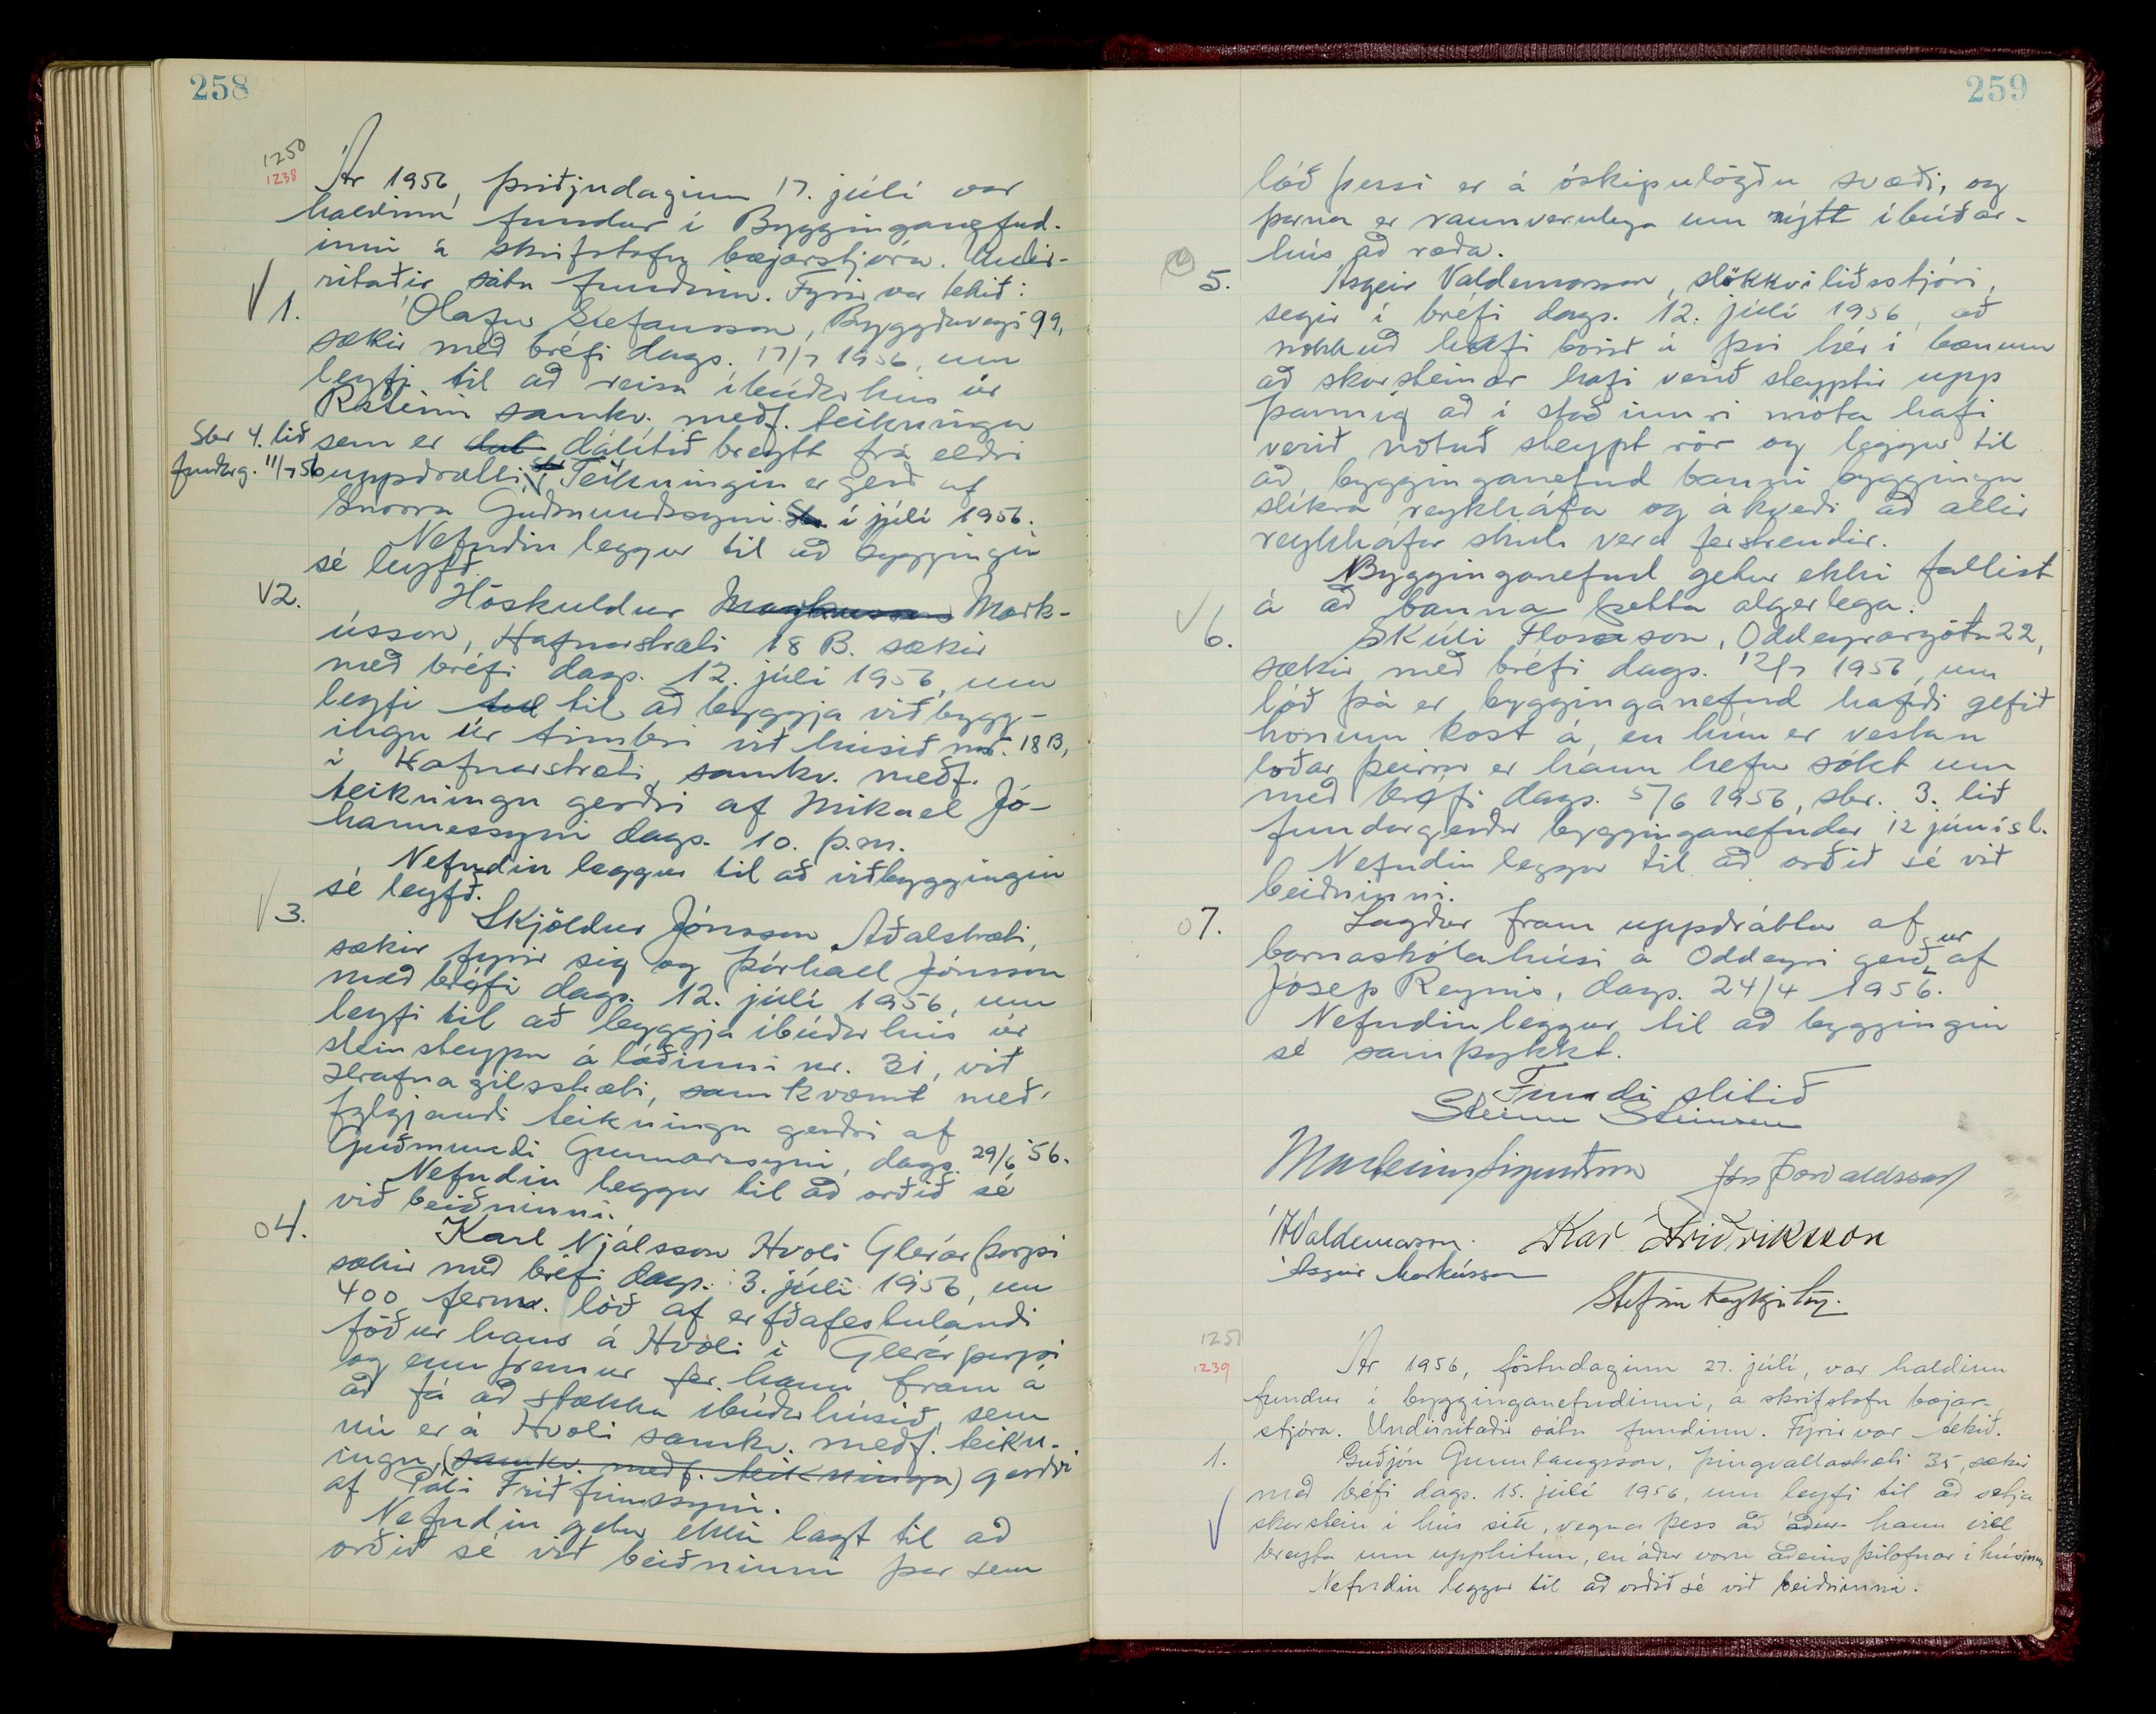 258
1250
1238
Ár 1956, þriðjudaginn 17. júlí var
haldinn fundur í Bygginganefnd-
inni á skrifstofu bæjarstjóra. Undir-
ritaðir sátu fundinn. Fyrir var tekið:
1. Ólafur Stefánsson, Byggðavegi 99,
sækir með bréfi dags. 17/7 1956, um
leyfi til að reisa íbúðarhús úr
Rsteini samkv. meðf. teikningu
Sbr 4. lið sem er dálítið breytt frá eldri
fundarg. 11/7 56 uppdrætti. Teikningin er gerð af
Snorra Guðmundssyni í júlí 1956.
Nefndin leggur til að byggingin
sé leyfð.
V2. Höskuldur Magnusson Mark-
ússon, Hafnarstræti 18 B. sækir
með bréfi dags. 12. júlí 1956, um
leyfi til að byggja viðbygg-
ingu úr timbri við húsið nr. 18 B,
í Hafnarstræti, samkv. meðf.
teikningu gerðri af Mikael Jó-
hannessyni dags. 10. þ.m.
Nefndin leggur til að viðbyggingin
sé leyfð.
3. Skjöldur Jónsson Aðalstræti,
sækir fyrir sig og Þórhall Jónsson
með bréfi dags. 12. júlí 1956, um
leyfi til að byggja íbúðarhús úr
steinsteypu á lóðinni nr. 31, við
Hrafnagilsstræti, samkvæmt með-
fylgjandi teikningu gerðri af
Guðmundi Gunnarssyni, dags. 29/6 '56.
Nefndin leggur til að orðið sé
við beiðninni.
04. Karl Njálsson Hvoli Glerárþorpi
sækir með bréfi dags. 3. júlí 1956, um
400 ferm. lóð af erfðafestulandi
föður hans á Hvoli í Glerárþorpi
og ennfremur fer hann fram á
að fá að stækka íbúðarhúsið, sem
nú er á Hvoli samkv. meðf. teikn-
ingu, (samkv. meðf. teikningu) gerðri
af Páli Friðfinnssyni.
Nefndin getur ekki lagt til að
orðið sé við beiðninni þar sem
259
lóð þessi er á óskipulögðu svæði, og
þarna er raunverulega um nýtt íbúðar-
hús að ræða.
5. Ásgeir Valdemarsson, slökkviliðsstjóri,
segir í bréfi dags. 12. júlí 1956, að
nokkuð hafi borið á því hér í bænum
að skorsteinar hafi verið steyptir upp
þannig að í stað innri móta hafi
verið notuð steypt rör og leggur til
að bygginganefnd banni byggingu
slíkra reykháfa og ákveði að allir
reykháfar skuli vera ferstrendir.
Bygginganefnd getur ekki fallist
á að banna þetta algerlega.
6. Skúli Flosason, Oddeyrargötu 22,
sækir með bréfi dags. 12/7 1956, um
lóð þá er bygginganefnd hafði gefið
honum kost á, en hún er vestan
lóðar þeirrar er hann hefur sókt um
með bréfi dags. 5/6 1956, sbr. 3. lið
fundargerðar bygginganefndar 12 júní s.l.
Nefndin leggur til að orðið sé við
beiðninni.
07. Lagður fram uppdráttur af
barnaskólahúsi á Oddeyri gerður af
Jósep Reynis, dags. 24/4 1956.
Nefndin leggur til að byggingin
sé samþykkt.
Fundi slitið
Steinn Steinsen
Marteinn Sigurðsson Jón Þorvaldsson
ÁValdemarsson. Karl Friðriksson
Ásgeir Markússon
Stefán Reykjalín.
1251
1239
Ár 1956, föstudaginn 27. júlí, var haldinn
fundur í bygginganefndinni, á skrifstofu bæjar-
stjóra. Undirritaðir sátu fundinn. Fyrir var tekið.
1. Guðjón Gunnlaugsson, Þingvallastræti 35, sækir
með bréfi dags. 15. júlí 1956, um leyfi til að setja
skorstein í hús sitt, vegna þess að áður hann vill
breyta um upphitun, en áður voru aðeins þilofnar í húsinu
Nefndin leggur til að orðið sé við beiðninni.